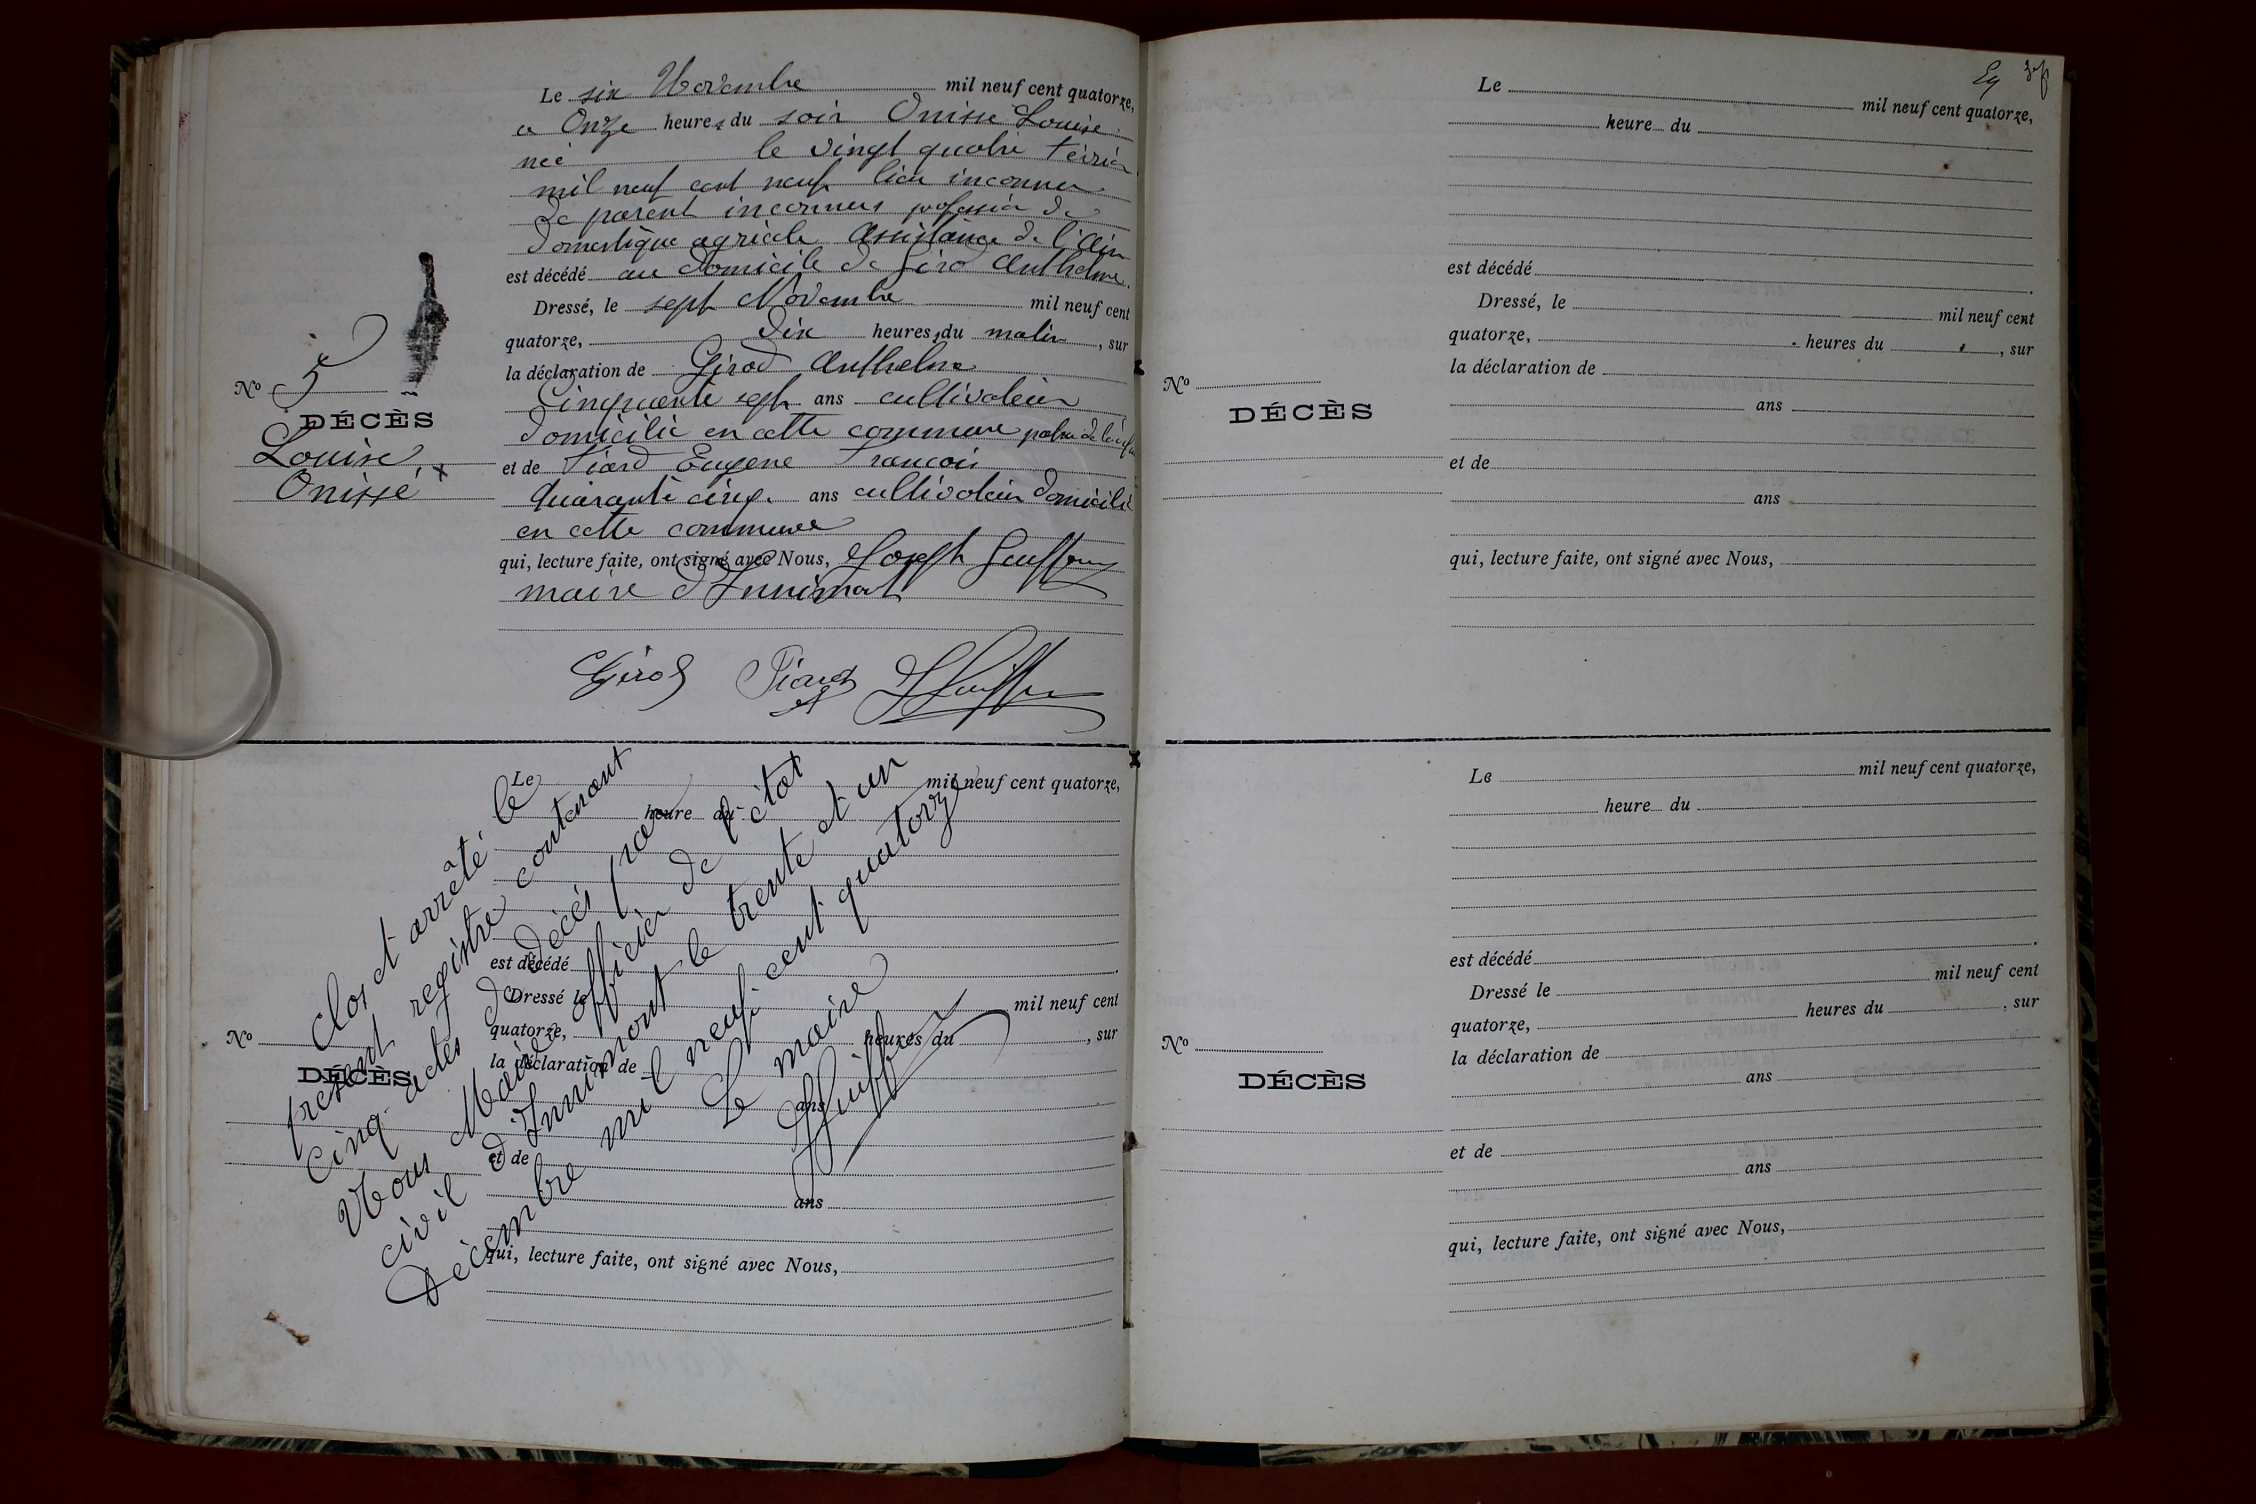 Le six Novembre mil neuf cent quatorze,
a Onze heures du soir Onisse Louise
née le vingt quatre Février
mil neuf cent neuf lieu inconnu
de parent inconnus profession de
domestique agricole assistance de l'Ain
est décédé au domicile de Girod Anthelme.
Dressé, le sept Novembre mil neuf cent
quatorze, Dix heures du matin, sur
la déclaration de Girod Anthelme
Cinquante sept ans cultivateur
domicilié en cette commune patron de
et de Piard Eugene François
quarante cinq ans cultivateur domicilié
en cette commune
qui, lecture faite, ont signé avec Nous, Joseph
maire d'Innimont
Girod Piard
No 5
DÉCÈS
Louise
Onissé
Le mil neuf cent quatorze,
heure du
est décédé
Dressé le mil neuf cent
quatorze, heures du , sur
la déclaration de
ans
et de
ans
qui, lecture faite, ont signé avec Nous,
No
DÉCÈS
Clos et arrêté le
présent registre contenant
cinq actes de décès par
Nous Maire officier de l'état
civil d'Innimont le trente et un
Décembre mil neuf cent quatorze
Le maire
Le mil neuf cent quatorze,
heure du
est décédé
Dressé, le mil neuf cent
quatorze, heures du , sur
la déclaration de
No
DÉCÈS
ans
et de
ans
qui, lecture faite, ont signé avec Nous,
Le mil neuf cent quatorze,
heure du
est décédé
Dressé le mil neuf cent
quatorze, heures du , sur
la déclaration de
No
DÉCÈS
ans
et de
ans
qui, lecture faite, ont signé avec Nous,